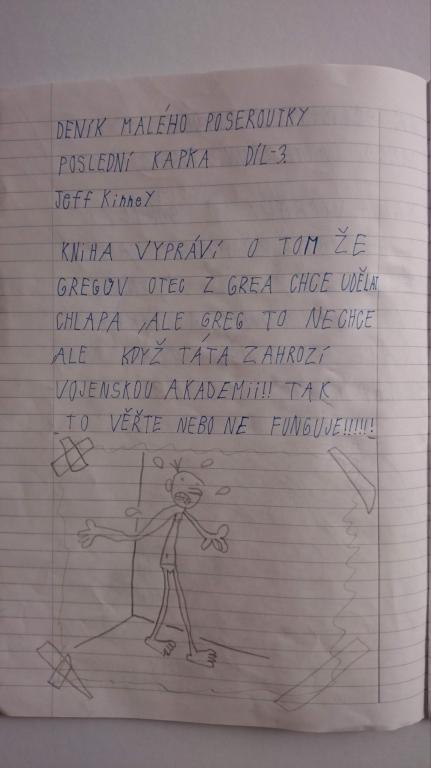 DENÍK MALÉHO POSEROUTKY
POSLEDNÍ KAPKA DÍL-3.
Jeff Kinney
KNIHA VYPRÁVÍ O TOM ŽE
GREGŮV OTEC Z GREA CHCE UDĚLAT
CHLAPA ,ALE GREG TO NECHCE
ALE KDYŽ TÁTA ZAHROZÍ
VOJENSKOU AKADEMII!! TAK
TO VĚŘTE NEBO NE FUNGUJE!!!!!!